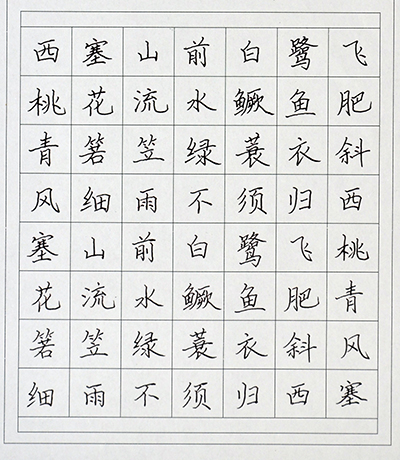 西塞山前白鹭飞
桃花流水鳜鱼肥
青箬笠绿蓑衣斜
风细雨不须归西
塞山前白鹭飞桃
花流水鳜鱼肥青
箬笠绿蓑衣斜风
细雨不须归西塞